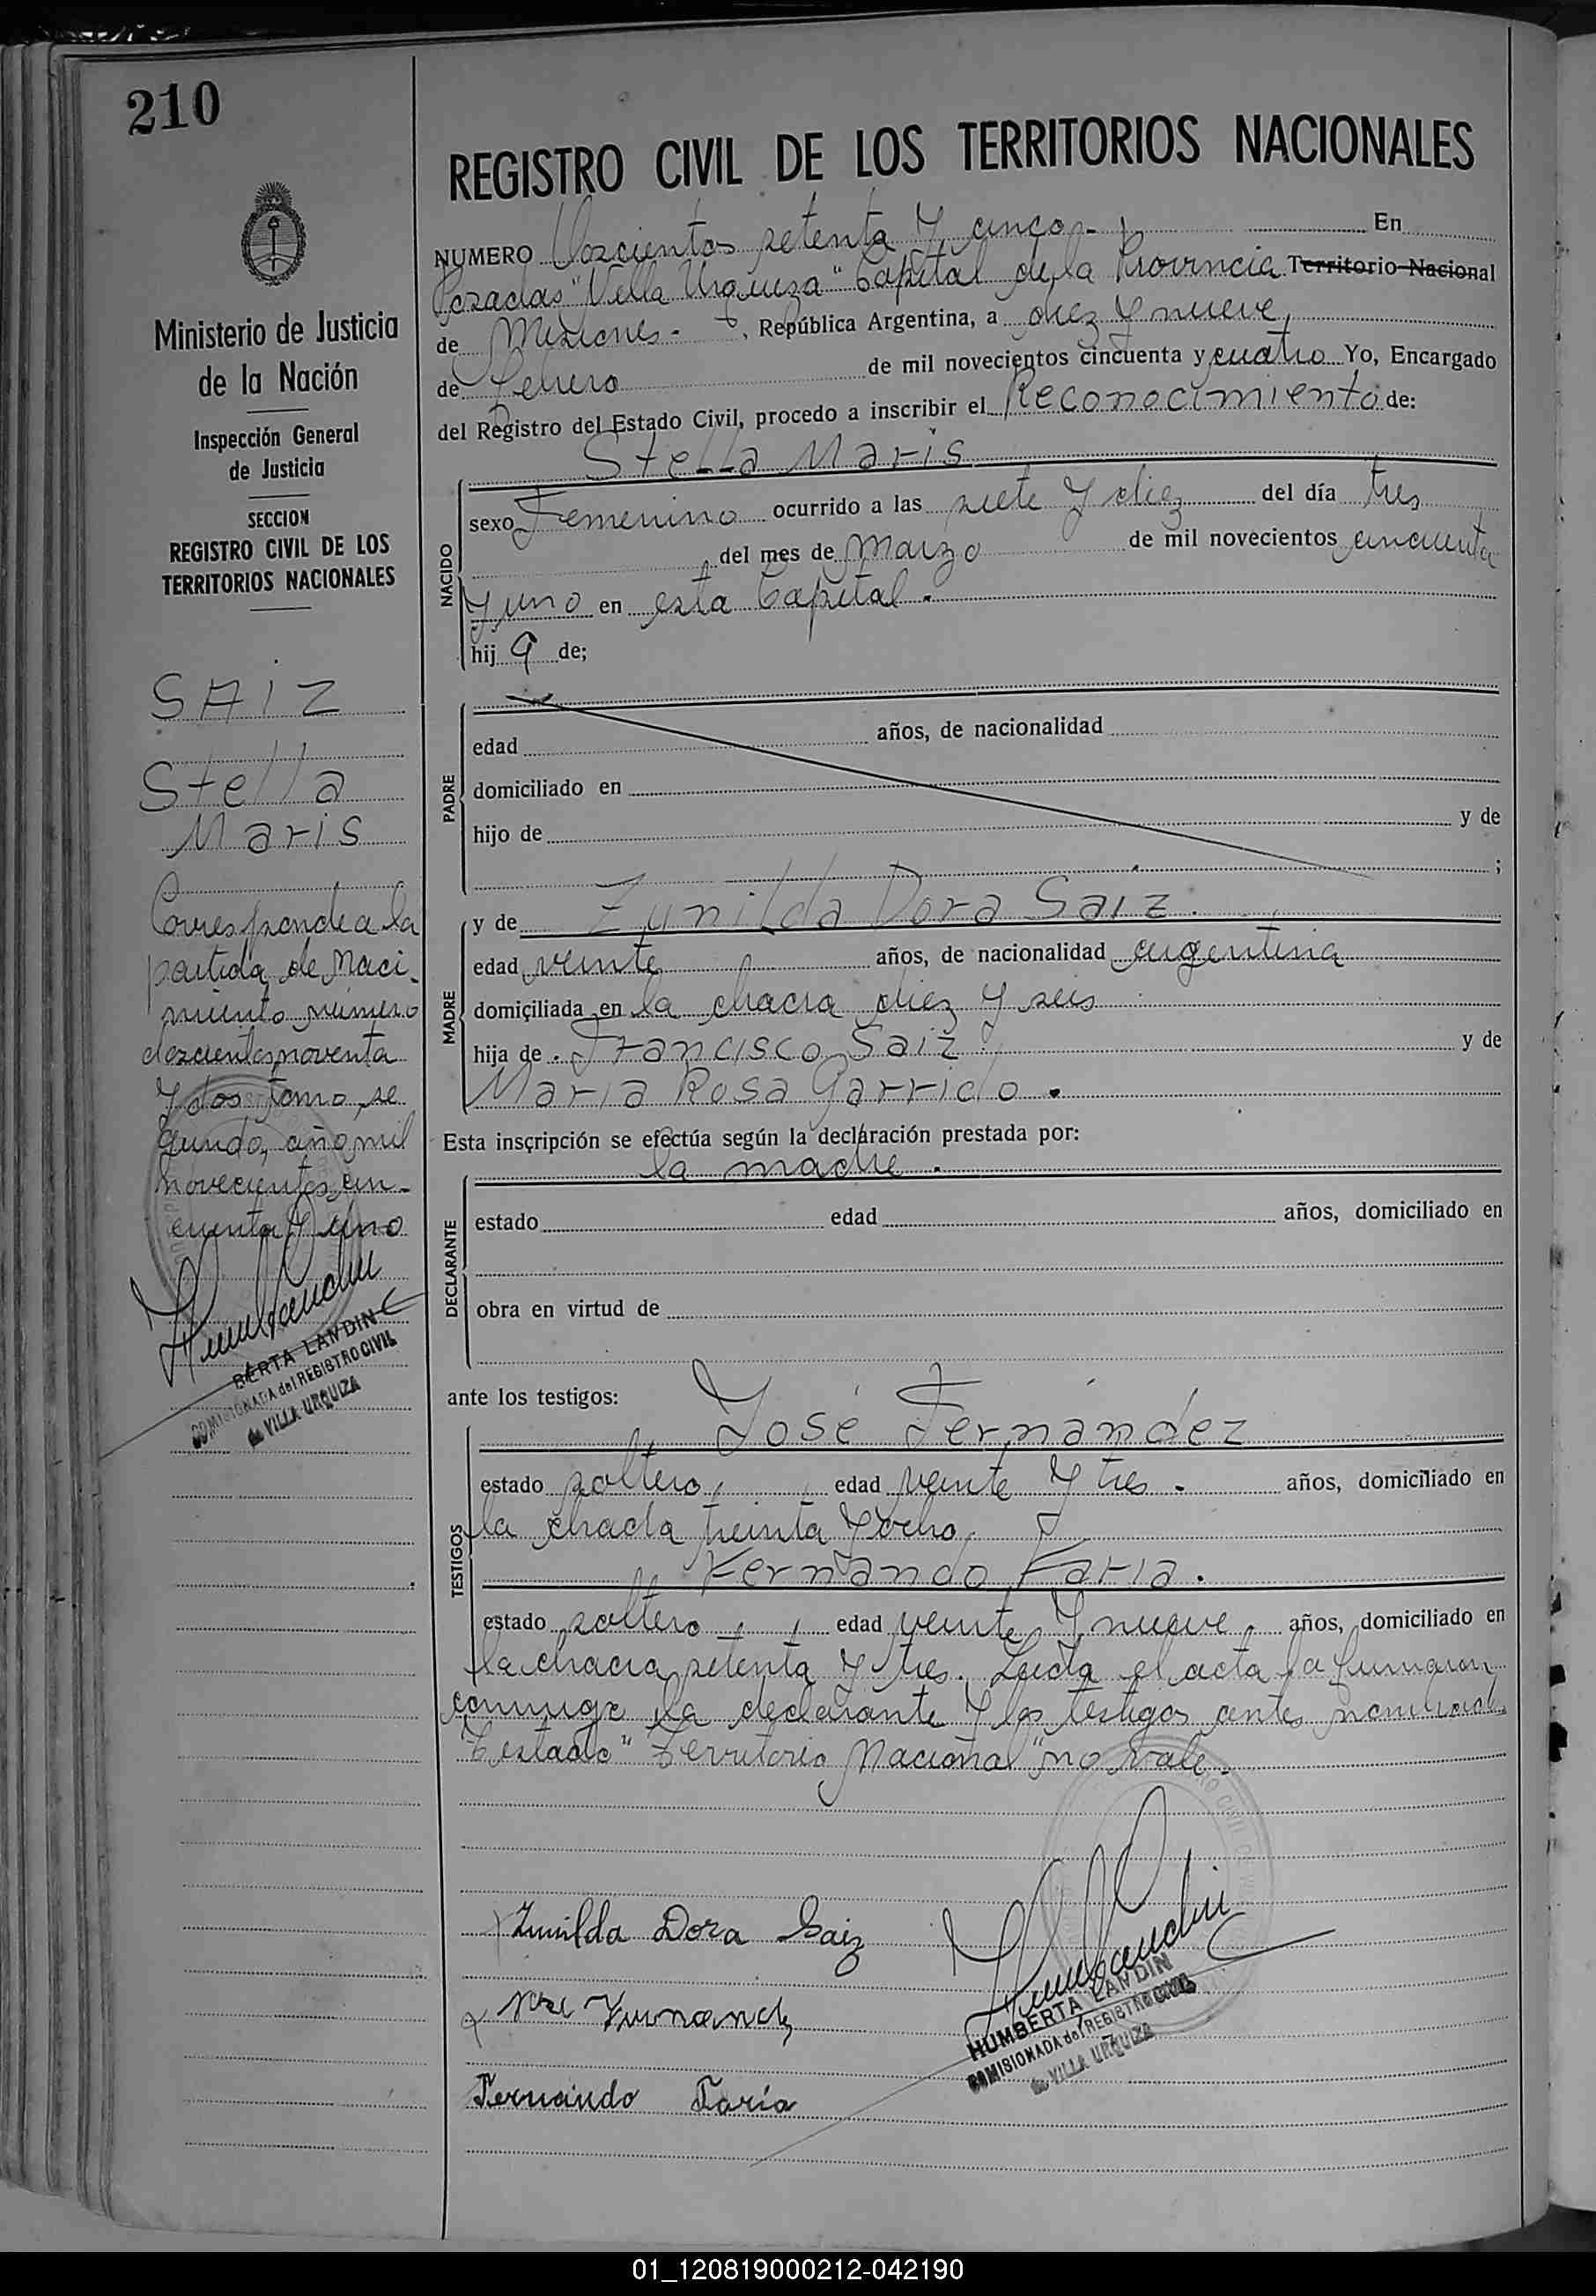 210
REGISTRO CIVIL DE LOS TERRITORIOS NACIONALES
Ministerio de Justicia
de la Nación
Inspección General
de Justicia
SECCION
REGISTRO CIVIL DE LOS
TERRITORIOS NACIONALES
SAIZ
Stella
Maris
Corresponde a la
partida de Naci-
miento número
doscientos noventa
y dos tomo se
gundo, año mil
novecientos cin-
cuenta y uno
BERTA LANDIN
COMISIONADA del REGISTRO CIVIL
de VILLA URQUIZA
NUMERO Doscientos setenta y cinco.- En
Posadas "Villa Urquiza" Capital de la Provincia Territorio Nacional
de Misiones.- , República Argentina, a diez y nueve
de Febrero de mil novecientos cincuenta y cuatro Yo, Encargado
del Registro del Estado Civil, procedo a inscribir el Reconocimiento de:
Stella Maris
NACIDO
sexo Femenino ocurrido a las siete y diez del día tres
del mes de Marzo de mil novecientos cincuenta
y uno en esta Capital.
hij a de;
PADRE
edad años, de nacionalidad
domiciliado en
hijo de y de
;
MADRE
y de Zunilda Dora Saiz.
edad veinte años, de nacionalidad argentina
domiciliada en la chacra diez y seis
hija de Francisco Saiz y de
Maria Rosa Garrido.
Esta inscripción se efectúa según la declaración prestada por:
la madre.
DECLARANTE
estado edad años, domiciliado en
obra en virtud de
ante los testigos:
TESTIGOS
José Fernández
estado soltero, edad veinte y tres. años, domiciliado en
la chacra treinta y ocho,
Fernando Faria.
estado soltero, edad veinte y nueve años, domiciliado en
la chacra setenta y tres. Leida el acta la firmaron
conmigo la declarante y los testigos antes nombrad.
Testado "Territorio Nacional" no vale.
Zunilda Dora Saiz
José Fernandez
Fernando Faría
HUMBERTA LANDIN
COMISIONADA del REGISTRO CIVIL
de VILLA URQUIZA
01_120819000212-042190